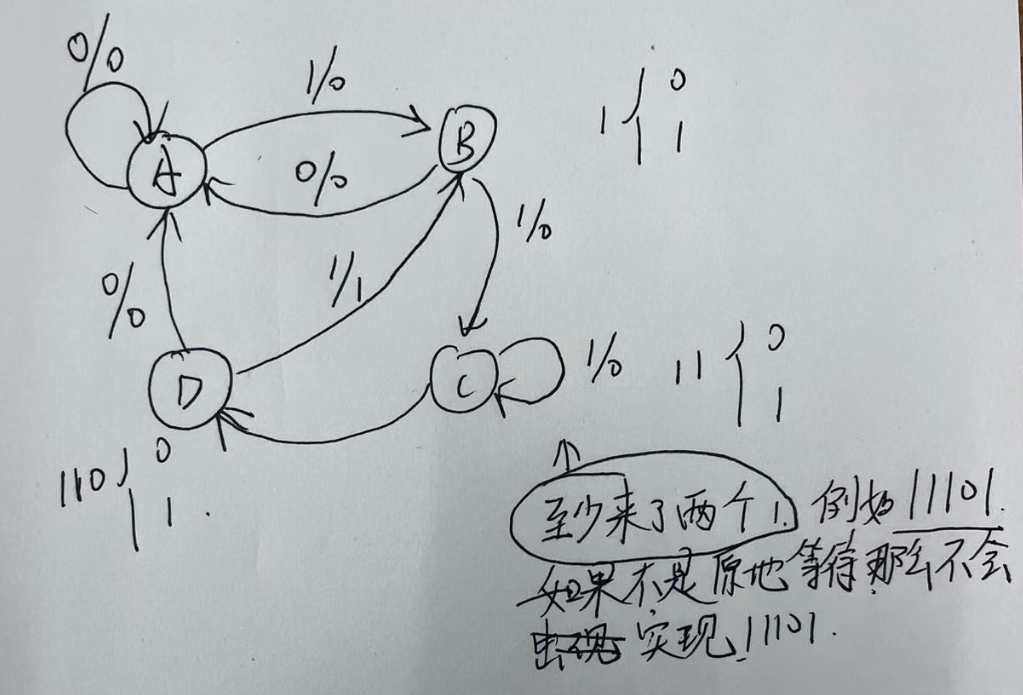 0/0
1/0
A
B
0/0
1 { 0
1
1/0
0/0
1/1
D
C
1/0
11 { 0
1
110 { 0
1.
至少来了两个1. 例如 11101.
如果不是原地等待.那么不会
出现 实现.11101.